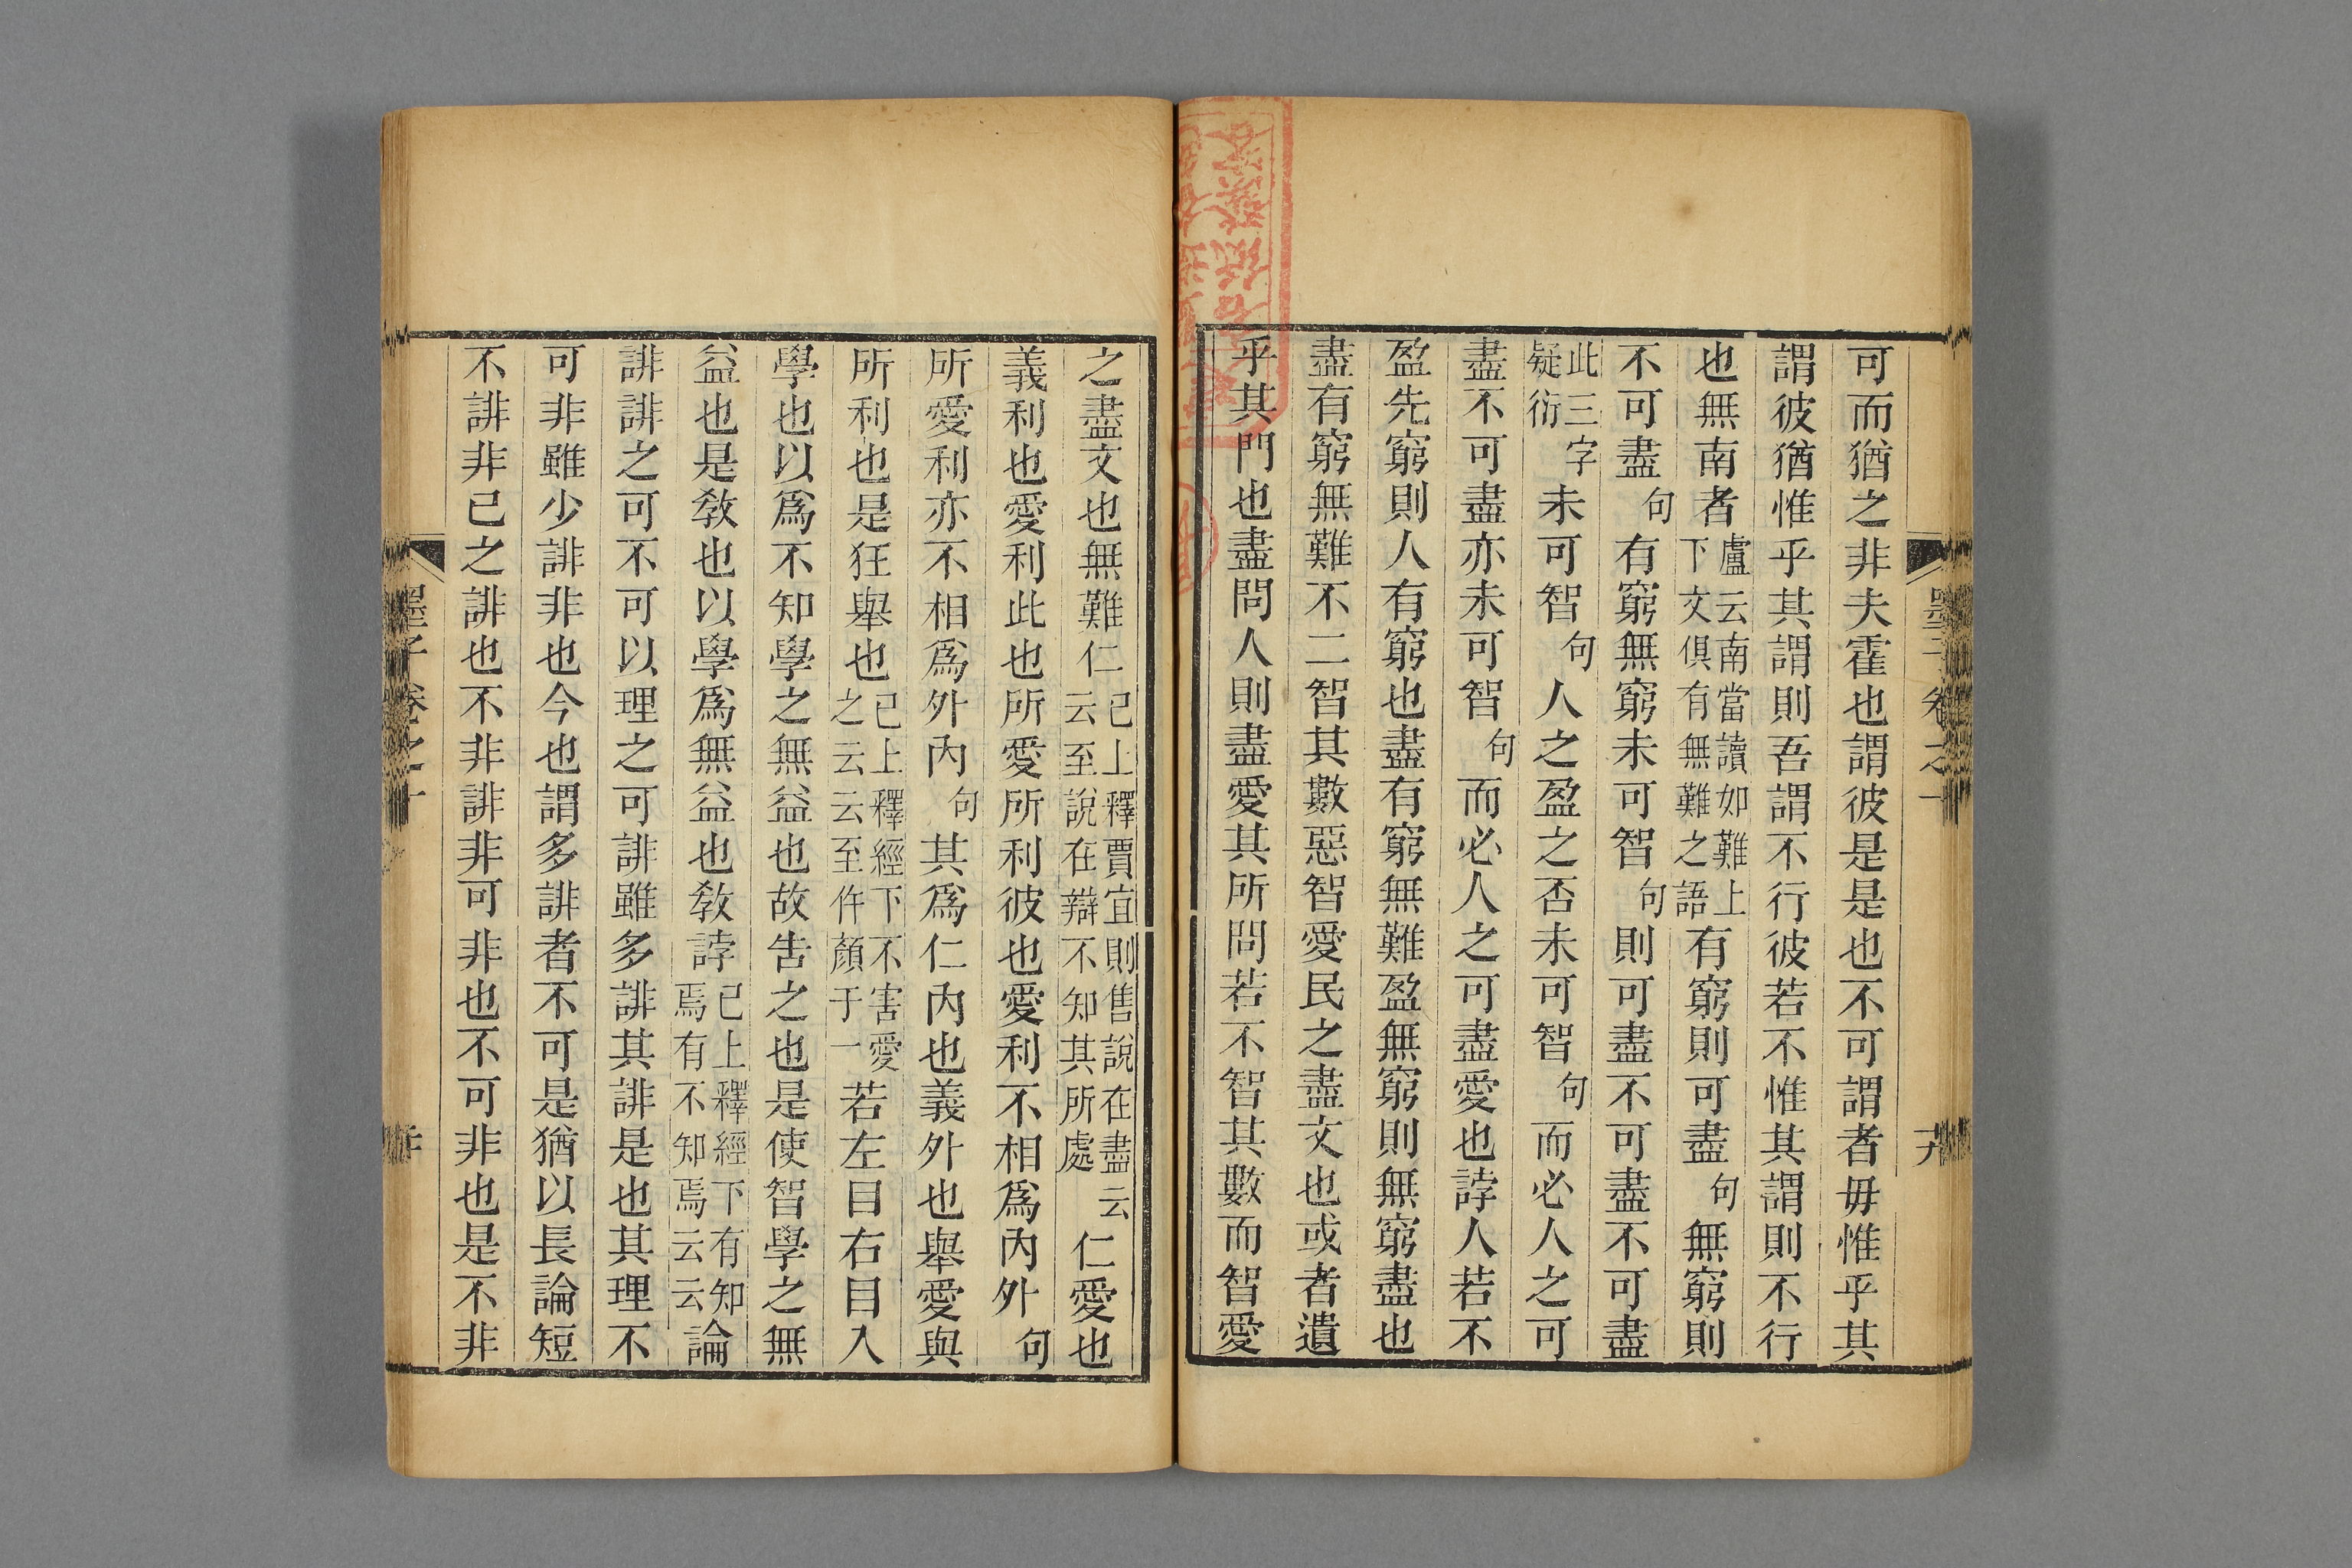 可而猶之非夫霍也謂彼是是也不可謂者毋惟乎其
謂彼猶惟乎其謂則吾謂不行彼若不惟其謂則不行
也無南者盧云南當讀如難上下文俱有無難之語有窮則可盡句無窮則
不可盡句有窮無窮未可智句則可盡不可盡不可盡
此三字疑衍未可智句人之盈之否未可智句而必人之可
盡不可盡亦未可智句而必人之可盡愛也誖人若不
盈先窮則人有窮也盡有窮無難盈無窮則無窮盡也
盡有窮無難不二智其數惡智愛民之盡文也或者遺
乎其門也盡問人則盡愛其所問若不智其數而智愛
之盡文也無難仁已上釋賈宜則售說在盡云云至說在辯不知其所處仁愛也
義利也愛利此也所愛所利彼也愛利不相爲內外句
所愛利亦不相爲外內句其爲仁內也義外也舉愛與
所利也是狂舉也已上釋經下不害愛之云云至仵顏于一若左目右目入
學也以爲不知學之無益也故告之也是使智學之無
益也是教也以學爲無益也教誖已上釋經下有知焉有不知焉云云論
誹誹之可不可以理之可誹雖多誹其誹是也其理不
可非雖少誹非也今也謂多誹者不可是猶以長論短
不誹非已之誹也不非誹非可非也不可非也是不非
墨子卷之十